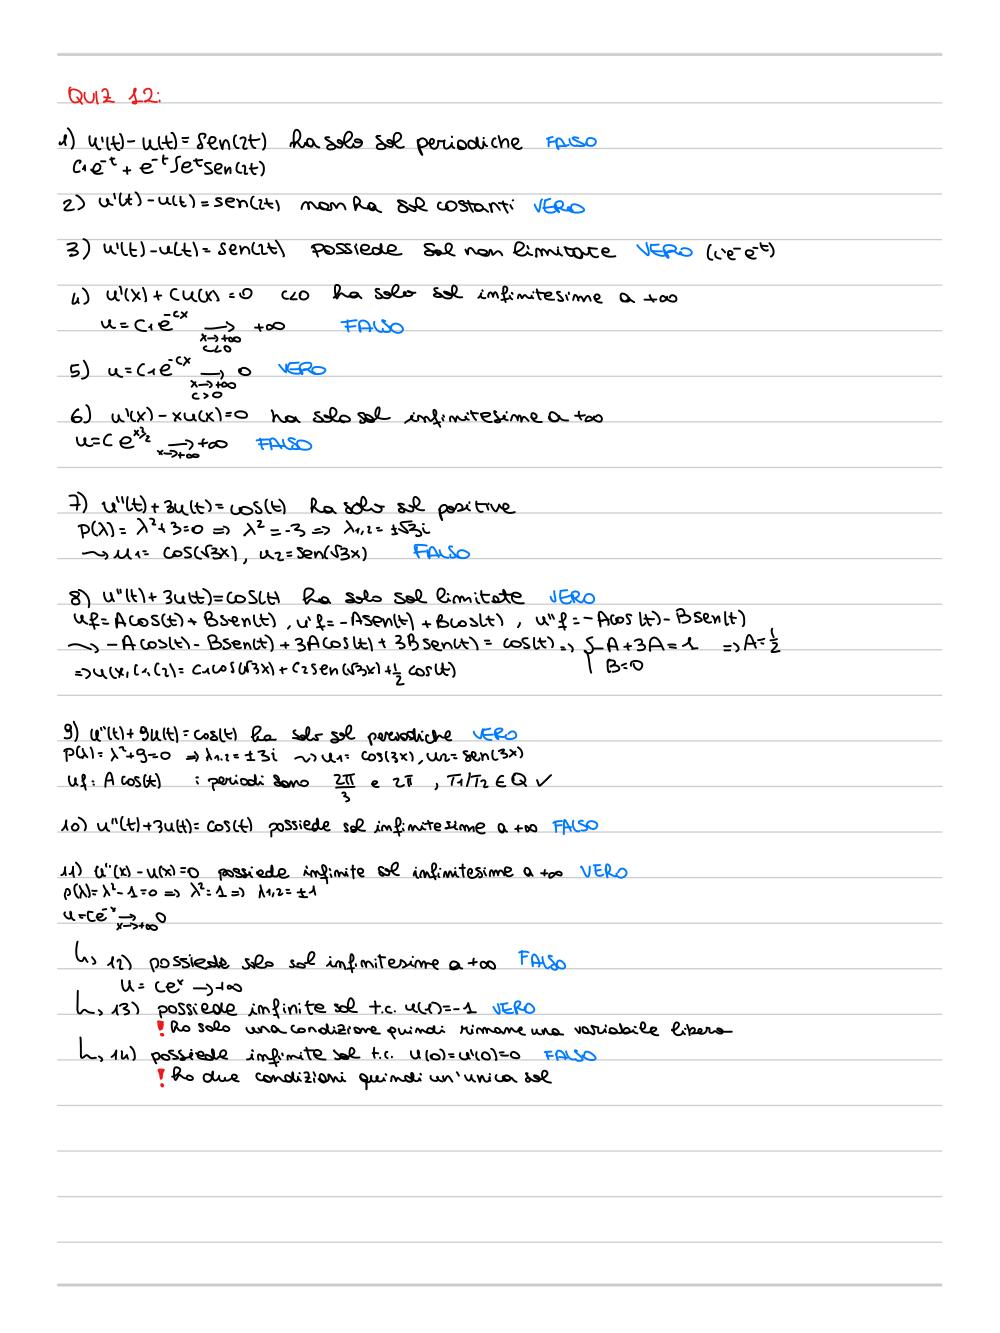 QUIZ 12:
1) u'(t) - u(t) = sen(2t) ha solo sol periodiche FALSO
C₁e^-t + e^-t ∫e^t sen(2t)
2) u'(t) - u(t) = sen(2t) non ha sol costanti VERO
3) u'(t) - u(t) = sen(2t) possiede sol non limitate VERO (c'è e^-t)
4) u'(x) + cu(x) = 0 c<0 ha solo sol infinitesime a +∞
u = C₁e^-cx → +∞ FALSO
x→+∞
c<0
5) u = C₁e^-cx → 0 VERO
x→+∞
c>0
6) u'(x) - xu(x) = 0 ha solo sol infinitesime a +∞
u = C e^x²/2 → +∞ FALSO
x→+∞
7) u''(t) + 3u(t) = cos(t) ha solo sol positive
P(λ) = λ² + 3 = 0 => λ² = -3 => λ1,2 = ±√3i
~> u₁ = cos(√3x), u₂ = sen(√3x) FALSO
8) u''(t) + 3u(t) = cos(t) ha solo sol limitate VERO
uf = Acos(t) + Bsen(t), u'f = -Asen(t) + Bcos(t), u''f = -Acos(t) - Bsen(t)
~> -Acos(t) - Bsen(t) + 3Acos(t) + 3Bsen(t) = cos(t) => { -A + 3A = 1 => A = 1/2
B = 0
=> u(x, C₁, C₂) = C₁cos(√3x) + C₂sen(√3x) + 1/2 cos(t)
9) u''(t) + 9u(t) = cos(t) ha solo sol periodiche VERO
P(λ) = λ² + 9 = 0 => λ1,2 = ±3i ~> u₁ = cos(3x), u₂ = sen(3x)
uf: A cos(t) i periodi sono 2π/3 e 2π, T₁/T₂ ∈ Q ✓
10) u''(t) + 3u(t) = cos(t) possiede sol infinitesime a +∞ FALSO
11) u''(x) - u(x) = 0 possiede infinite sol infinitesime a +∞ VERO
P(λ) = λ² - 1 = 0 => λ² = 1 => λ1,2 = ±1
u = Ce^-x → 0
x→+∞
↳ 12) possiede solo sol infinitesime a +∞ FALSO
u = Ce^x → +∞
↳ 13) possiede infinite sol t.c. u(1) = -1 VERO
! ho solo una condizione quindi rimane una variabile libera
↳ 14) possiede infinite sol t.c. u(0) = u'(0) = 0 FALSO
! ho due condizioni quindi un'unica sol